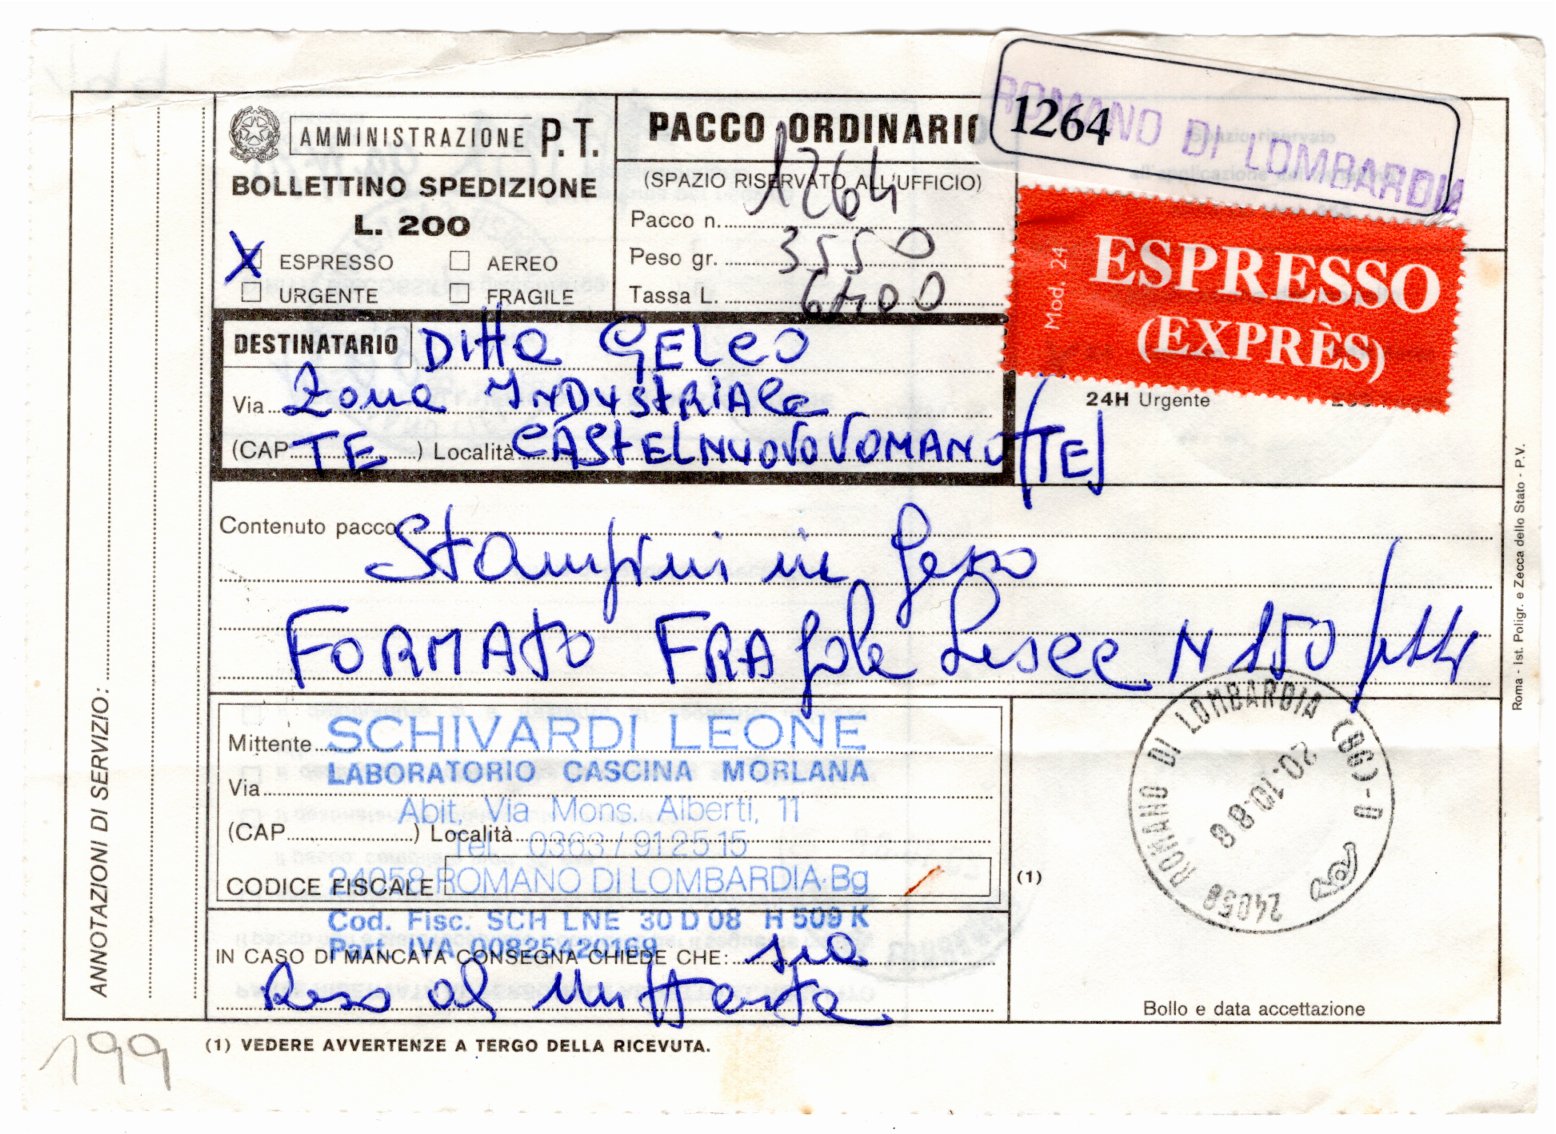 AMMINISTRAZIONE P.T.
BOLLETTINO SPEDIZIONE
L. 200
X ESPRESSO AEREO
URGENTE FRAGILE
PACCO ORDINARIO
(SPAZIO RISERVATO ALL'UFFICIO)
Pacco n. 1264
Peso gr. 3550
Tassa L. 6400
1264 ROMANO DI LOMBARDIA
Mod. 24
ESPRESSO
(EXPRÈS)
24H Urgente
DESTINATARIO Ditta GELCO
Via Zona INDUSTRIALE
(CAP TE ) Località CASTELNUOVO VOMANO (TE)
Contenuto pacco:
Stampini in gesso
FORMATO FRAgole Lisce N 150
Mittente SCHIVARDI LEONE
LABORATORIO CASCINA MORLANA
Via
Abit. Via Mons. Alberti, 11
(CAP ) Località
Tel. 0363 / 912515
CODICE FISCALE
24058 ROMANO DI LOMBARDIA-Bg
Cod. Fisc. SCH LNE 30 D 08 H 509 K
Part. IVA 00825420169
IN CASO DI MANCATA CONSEGNA CHIEDE CHE: sia
Reso al Mittente
(1)
24058 ROMANO DI LOMBARDIA (BG)-D
20.10.86
Bollo e data accettazione
(1) VEDERE AVVERTENZE A TERGO DELLA RICEVUTA.
ANNOTAZIONI DI SERVIZIO:
Roma - Ist. Poligr. e Zecca dello Stato - P.V.
199